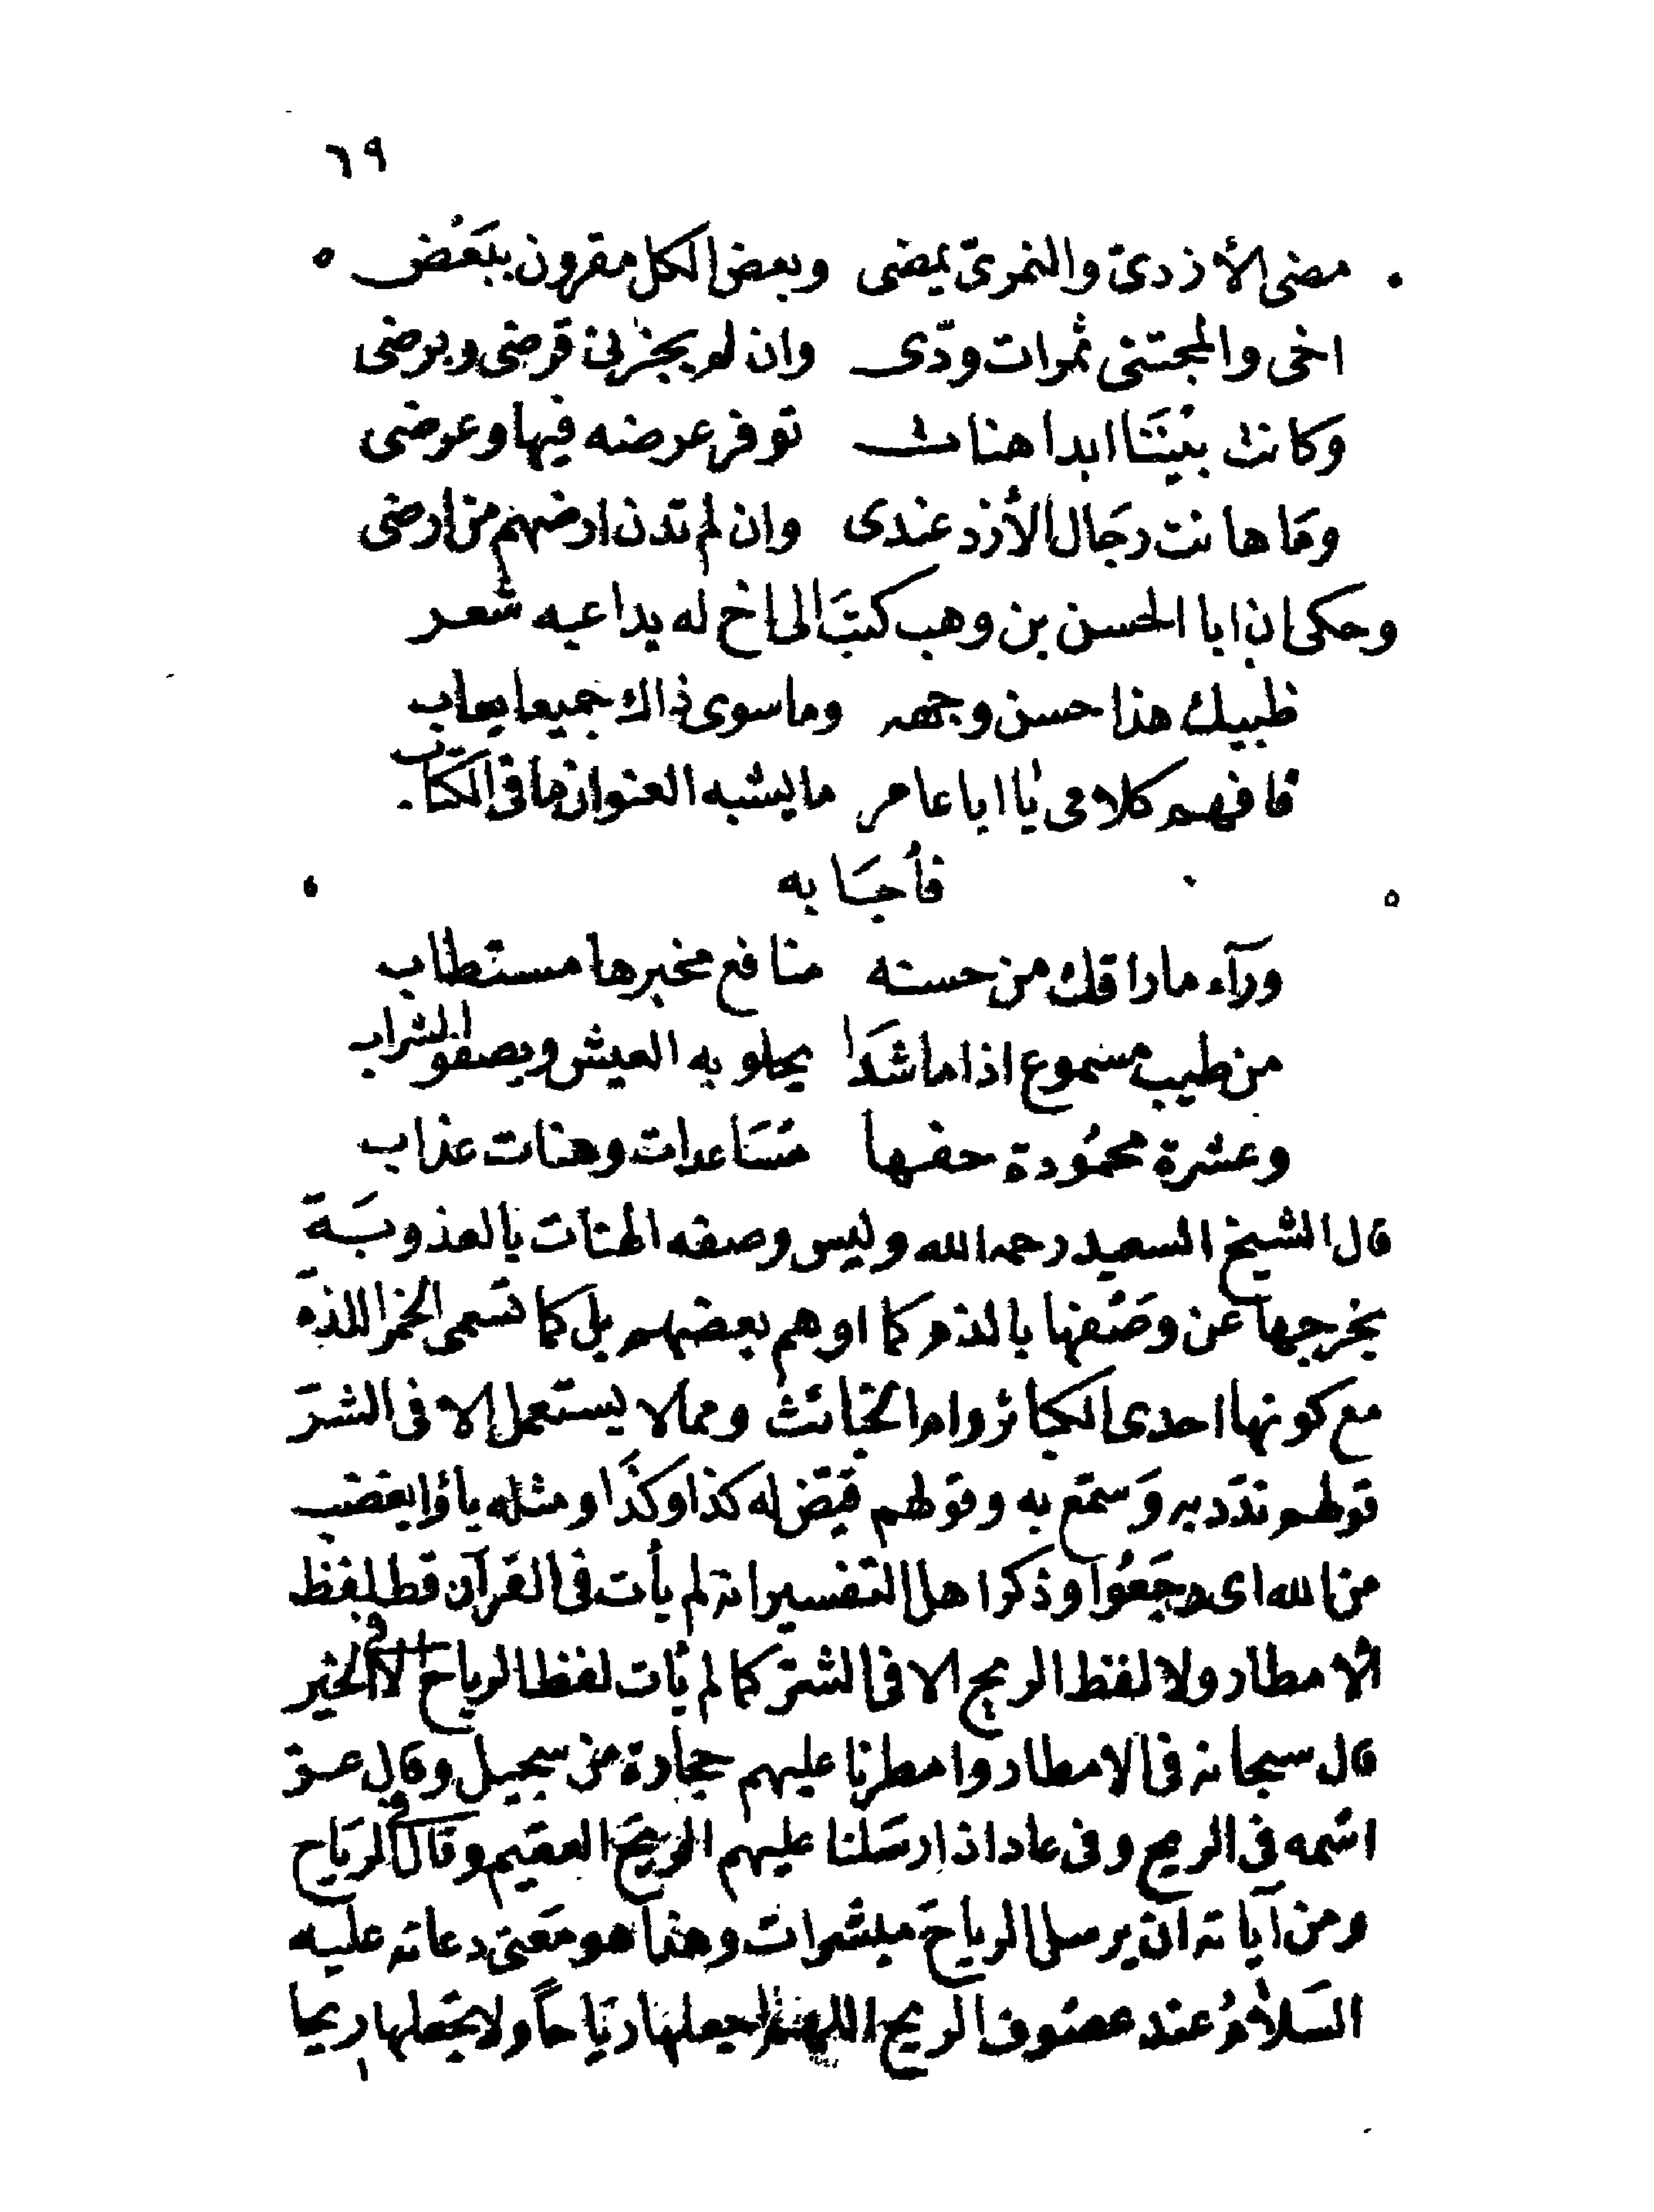 ٦٩
مضى الأزدىّ والنمرىّ يمضى وبعض الكل مقرون ببَعْض
اخى والمجتنى ثمرات ودّى وان لم يجزنى قرضى وبرضى
وكانت بيْنَنَا ابدا هنات توفر عرضه فيها وعرضى
ومَا هانت رجَال الأزد عندى وان لم تدن ارضهم من ارضى
وحكى ان ابا الحسن بن وهب كتبَ الى اخ له يداعبه شعر
ظبيك هذا حسن وجهه وما سوى ذاك جميعا يعاب
فافهم كلامى يا ابا عامر ما يشبه العنوان ما فى الكتاب
فأجَابه
ورآء ما راقك من حسنه منافع مخبرها مستطاب
من طيب مسموع اذا ما شَدَا يحلو به العيش ويصفو الشراب
وعشرة محمُودة حفها مسَاعدات وهنات عذاب
قال الشيخ السعيد رحمه الله وليس وصفه الهنات بالعذوبَة
يخرجها عن وصْفها بالذم كما اوهم بعضهم بل كما تسمى الخمر اللذة
مع كونها احدى الكبائر وام الخبائث ومما لا يستعمل الا فى الشرّ
قولهم ندّد به وَسمّع به وقولهم قيّض له كذا وكذَا ومثله باؤا بغضب
من الله اى رجَعُوا وذكر اهل التفسير انه لم يأت فى القرآن قط لفظ
الامطار ولا لفظ الريح الا فى الشرّ كما لم يأت لفظ الرياح الا فى الخير
قال سبحانه فى الامطار وامطرنا عليهم حجارة من سجيل وقال عز
اسمه فى الريح وفى عاد اذ ارسَلنا عليهم الريحَ العقيم وقال فى الريَاح
ومن آياته ان يرسل الرياحَ مبشرات وهذا هو معَنى دعائه عليه
السَلامُ عند عصُوف الريح اللهمّ اجعلها ريَاحاً ولا تجعلها ريحا